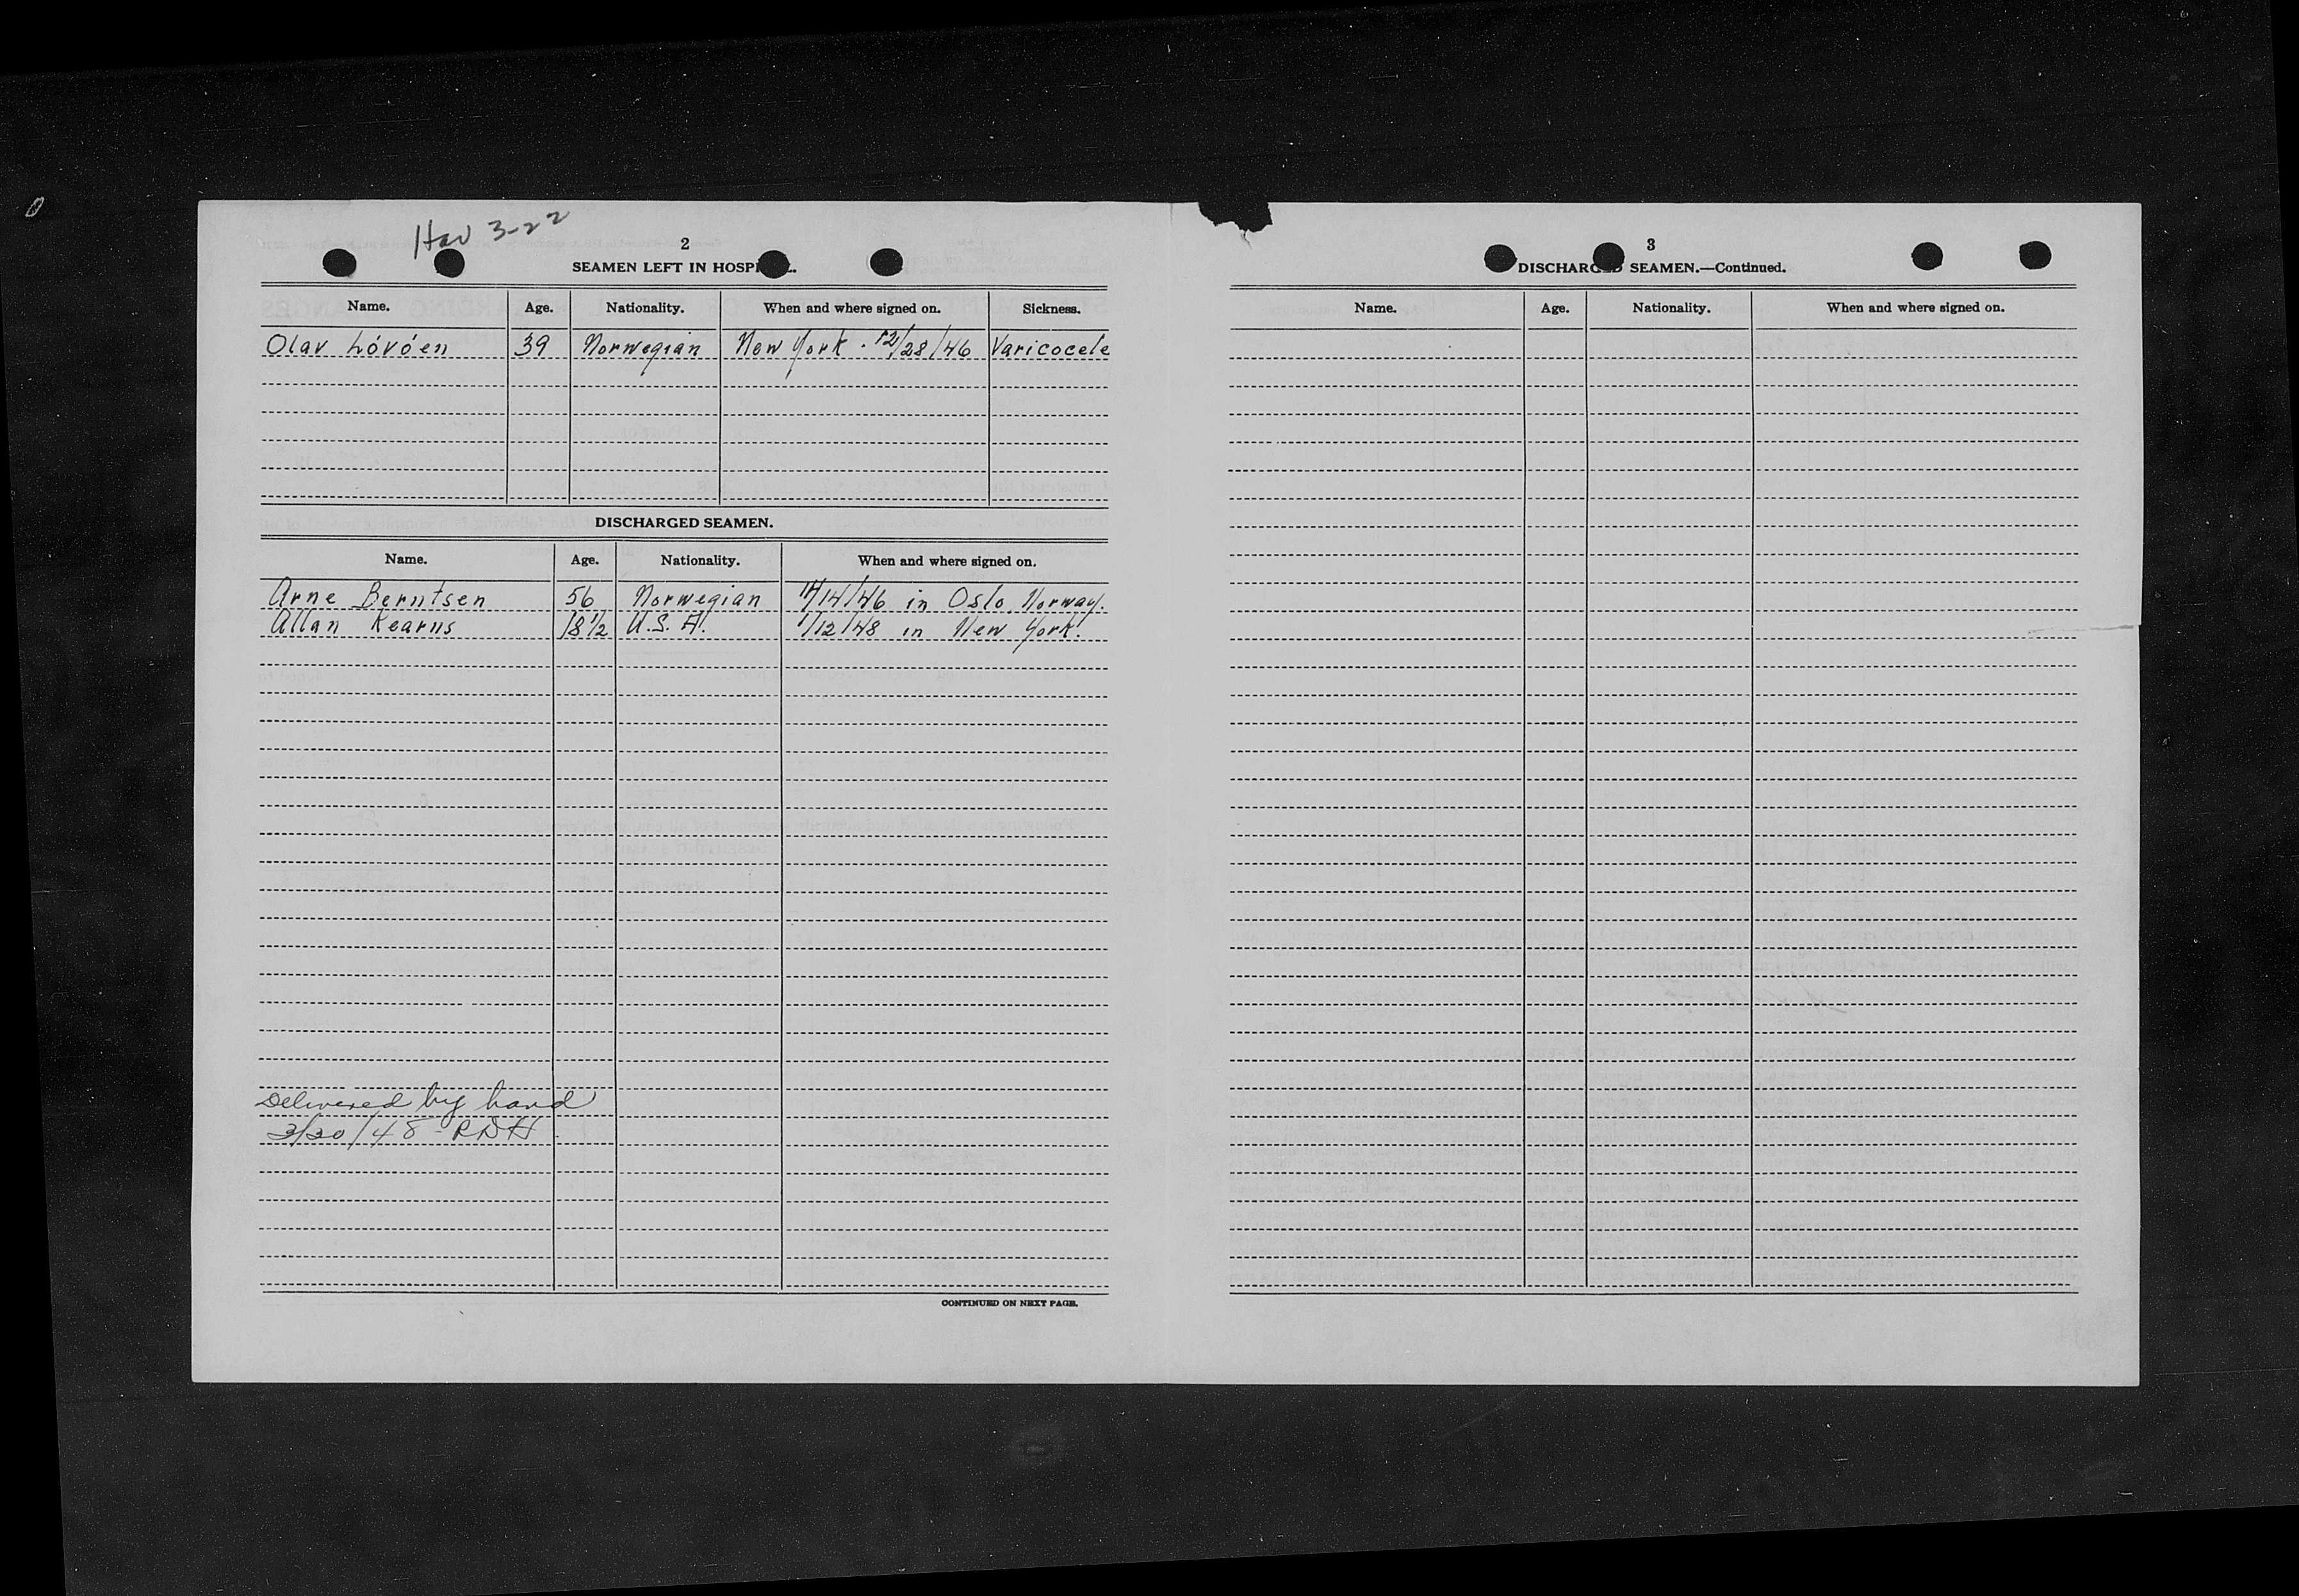 Hav 3-22
2
SEAMEN LEFT IN HOSPI L.
Name. Age. Nationality. When and where signed on. Sickness.
Olav Lóvóen 39 Norwegian New York. 12/28/46 Varicocele
DISCHARGED SEAMEN.
Name. Age. Nationality. When and where signed on.
Arne Berntsen 56 Norwegian 11/14/46 in Oslo, Norway.
Allan Kearns 18 1/2 U.S.A. 1/12/48 in New York.
Delivered by hand
3/30/48 - RDH
CONTINUED ON NEXT PAGE.
3
DISCHARGED SEAMEN.—Continued.
Name. Age. Nationality. When and where signed on.